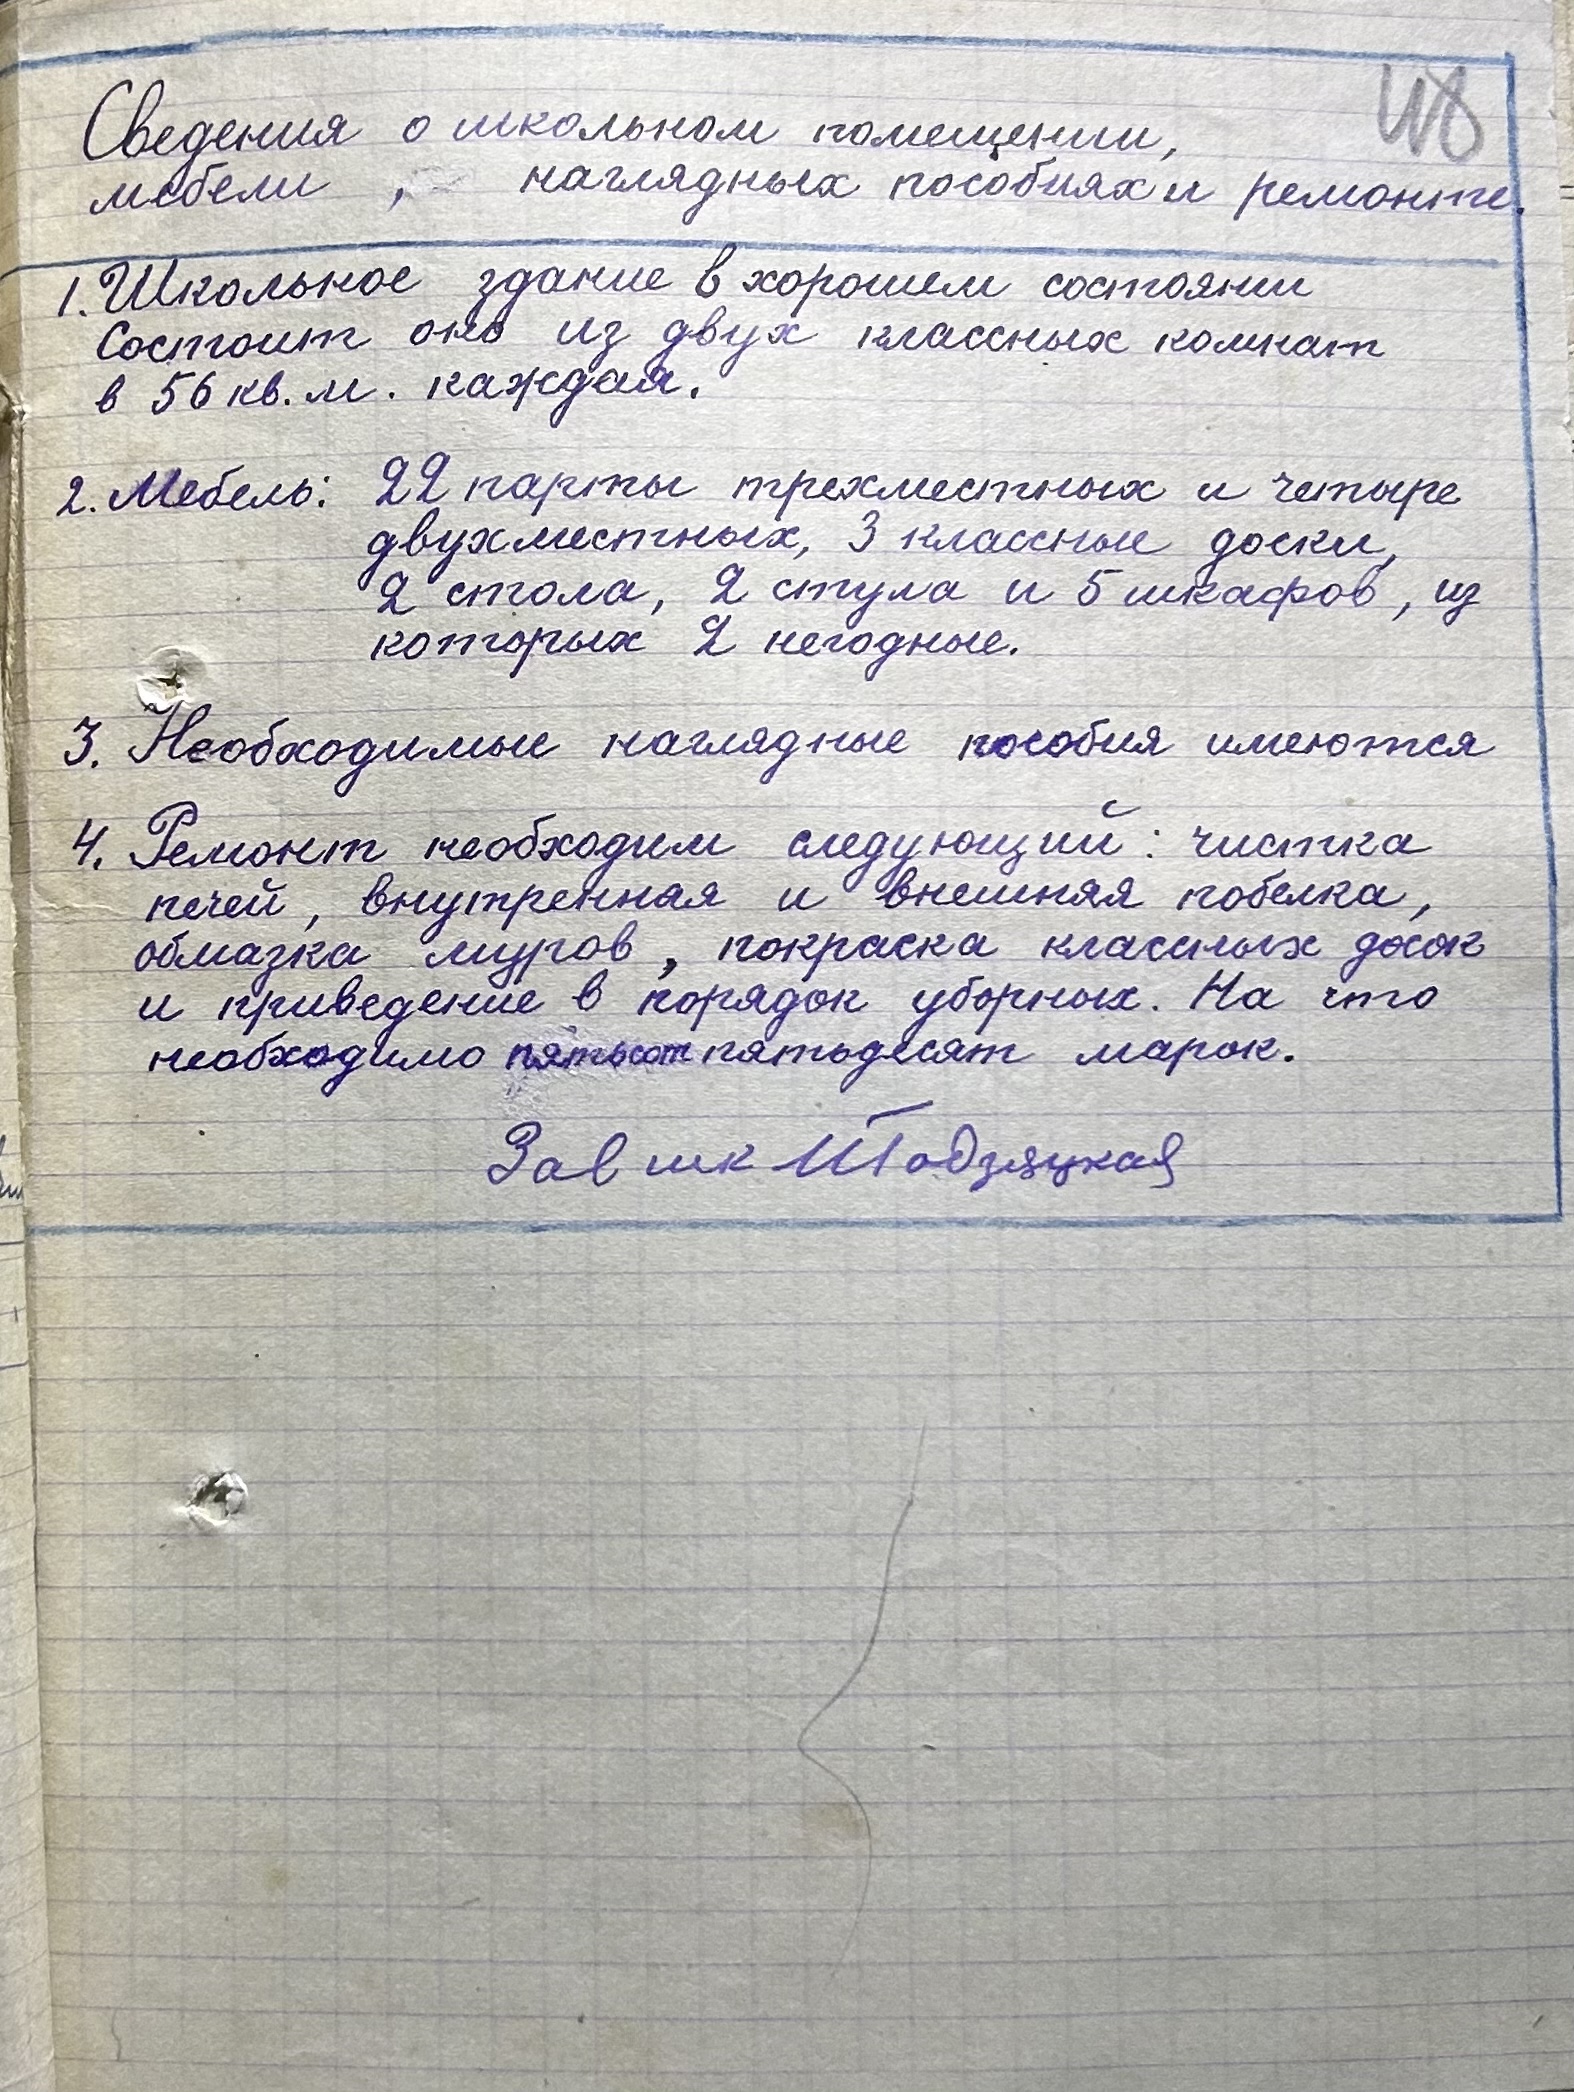 118
Сведения о школьном помещении,
мебели, наглядных пособиях и ремонте.
1. Школьное здание в хорошем состоянии
Состоит оно из двух классных комнат
в 56 кв. м. каждая.
2. Мебель: 22 парты трехместных и четыре
двухместных, 3 классные доски,
2 стола, 2 стула и 5 шкафов, из
которых 2 негодные.
3. Необходимые наглядные пособия имеются
4. Ремонт необходим следующий: чистка
печей, внутренная и внешняя побелка,
обмазка муров, покраска классных досок
и приведение в порядок уборных. На что
необходимо пятьсот пятьдесят марок.
Зав шк